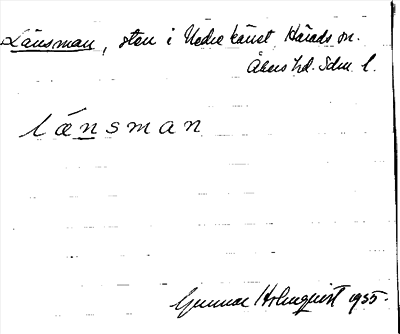 Länsman, sten i Nedre kärret, Härads sn.
Åkers hd. Sdm. l.
lǽnsman
Gunnar Holmquist 1935.